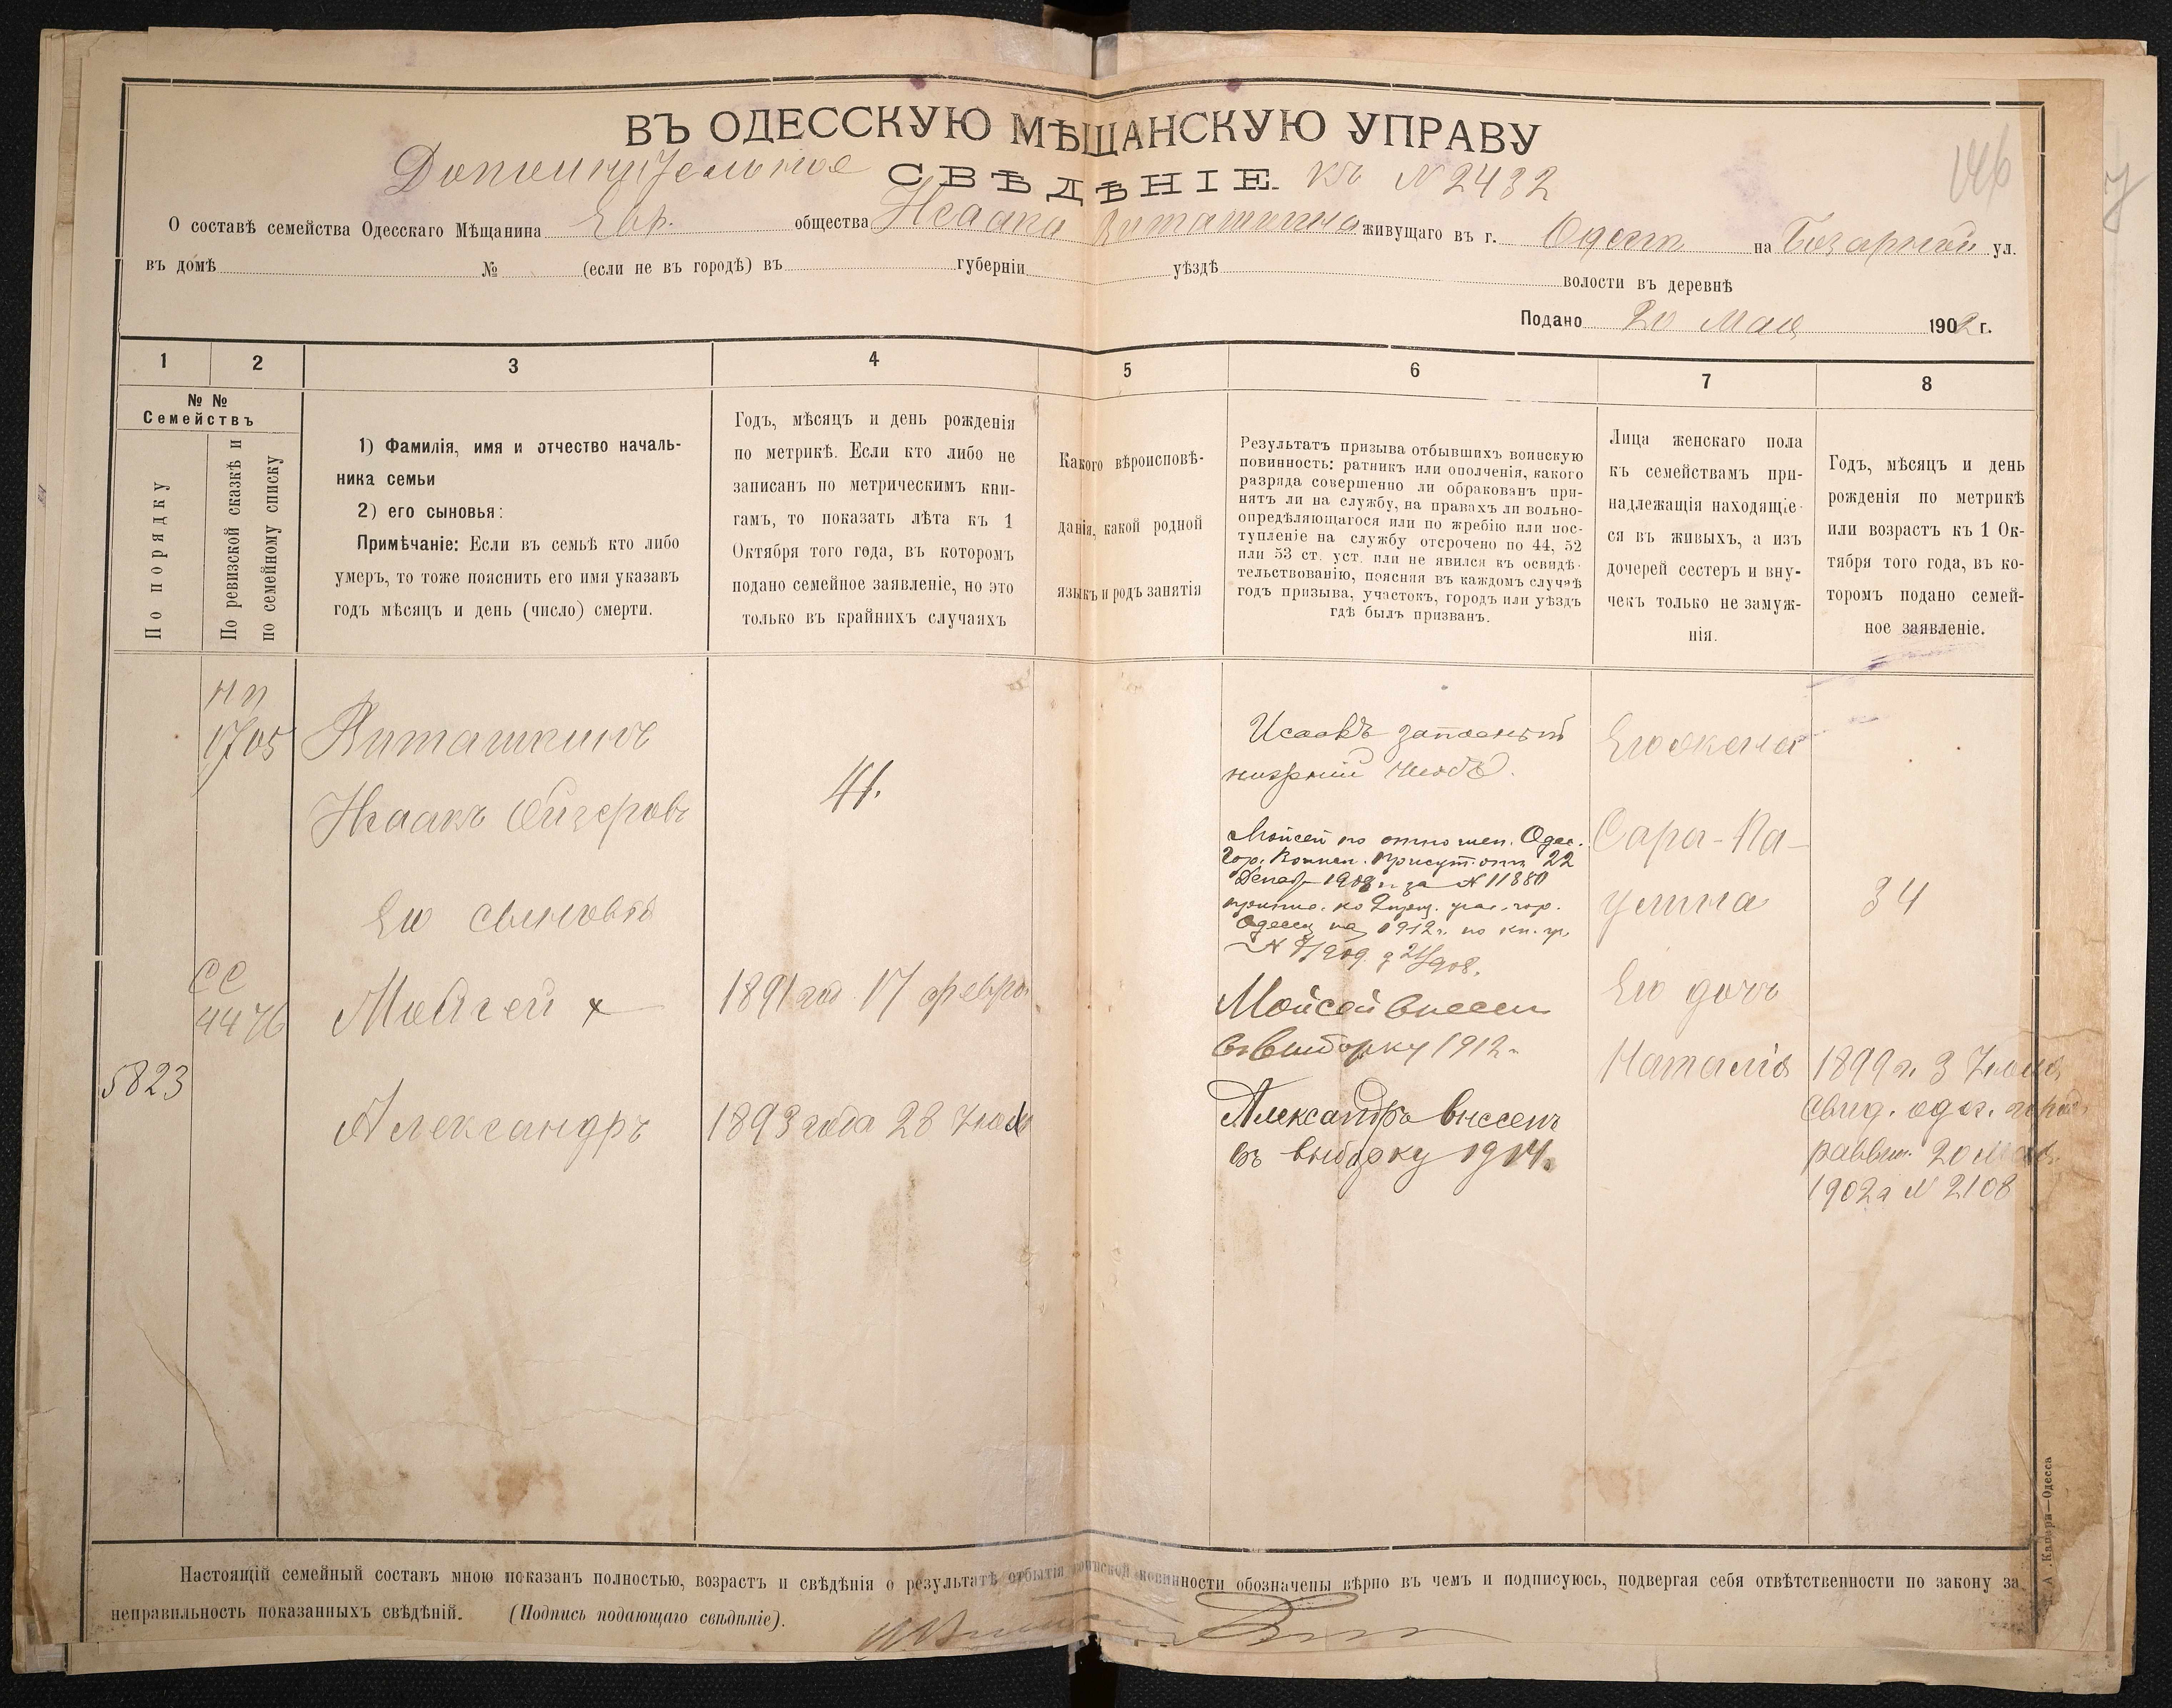 ВЪ ОДЕССКУЮ МѢЩАНСКУЮ УПРАВУ
Дополнительное СВѢДѢНІЕ къ № 2432
146
О составѣ семейства Одесскаго Мѣщанина Евр. общества Исаака живущаго въ г. Одессѣ на Базарной ул.
въ домѣ № (если не въ городѣ) въ губерніи уѣздѣ волости въ деревнѣ
Подано 20 Мая 1902 г.
1 2 3 4 5 6 7 8
№ №
Семействъ
По порядку
По ревизской сказкѣ и
по семейному списку
1) Фамилія, имя и отчество началь-
ника семьи
2) его сыновья:
Примѣчаніе: Если въ семьѣ кто либо
умеръ, то тоже пояснить его имя указавъ
годъ мѣсяцъ и день (число) смерти.
Годъ, мѣсяцъ и день рожденія
по метрикѣ. Если кто либо не
записанъ по метрическимъ кни-
гамъ, то показать лѣта къ 1
Октября того года, въ которомъ
подано семейное заявленіе, но это
только въ крайнихъ случаяхъ
Какого вѣроисповѣ-
данія, какой родной
языкъ и родъ занятія
Результатъ призыва отбывшихъ воинскую
повинность: ратникъ или ополченія, какого
разряда совершенно ли обракованъ при-
нятъ ли на службу, на правахъ ли вольно-
опредѣляющагося или по жребію или пос-
тупленіе на службу отсрочено по 44, 52
или 53 ст. уст. или не явился къ освидѣ-
тельствованію, поясняя въ каждомъ случаѣ
годъ призыва, участокъ, городъ или уѣздъ
гдѣ былъ призванъ.
Лица женскаго пола
къ семействамъ при-
надлежащія находящіе-
ся въ живыхъ, а изъ
дочерей сестеръ и вну-
чекъ только не замуж-
нія.
Годъ, мѣсяцъ и день
рожденія по метрикѣ
или возрастъ къ 1 Ок-
тября того года, въ ко-
торомъ подано семей-
ное заявленіе.
1705
Исаакъ Ойзеровъ
41.
Его сыновья
СС
4476
Мойсей х
1891 год 17 февра
5823
Александръ
1893 года 28
Исаакъ запасный
нижній чинъ.
Мойсей по отношен. Одес.
Гор. Воинск. Присут. отъ 22
Декаб. 1908 г. за № 11880
Одессы на 1912 г. по
Мойсей внесен
въ выборку 1912 г.
Александръ внесенъ
въ выборку 1914 г.
Его жена
Сара-Па-
улина
34
Его дочь
Наталія
1899 г. 3
свид. одес. город.
раввин. 20
1902 г № 2108
Настоящій семейный составъ мною показанъ полностью, возрастъ и свѣдѣнія о результатѣ отбытія воинской повинности обозначены вѣрно въ чемъ и подписуюсь, подвергая себя отвѣтственности по закону за
неправильность показанныхъ свѣдѣній. (Подпись подающаго свѣдѣніе).